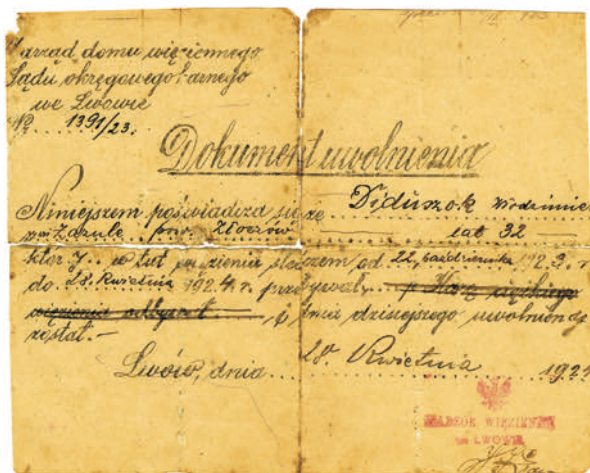 Zarząd domu więziennego
Sądu okręgowego karnego
we Lwowie
No 1391/23.
Dokument uwolnienia
Niniejszem poświadcza się że Diduszok Włodzimierz
Zarule pow. Złoczów lat 32
który w tut więzieniu śledczem od 22. października 1923. r
do 28. Kwietnia 1924. r. przebywał, karę ciężkiego
więzienia odbywał dnia dzisiejszego uwolniony
został.-
Lwów, dnia 28. Kwietnia 192
NADZÓR WIĘZIENNY
we LWOWIE